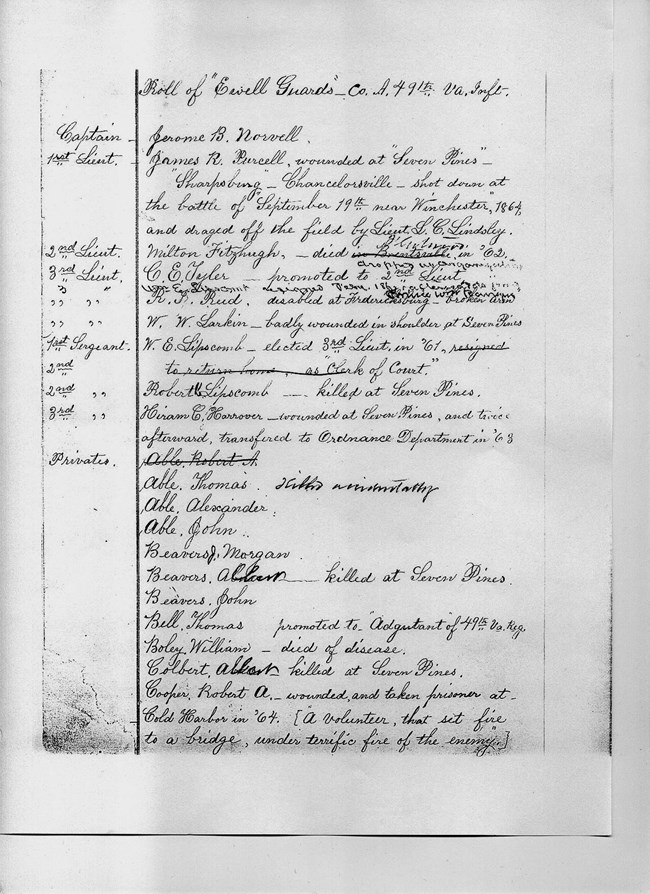 Roll of "Ewell Guards" – Co. A. 49th Va. Inft.
Captain – Jerome B. Norvell.
1st Lieut. – James R. Purcell, wounded at "Seven Pines" –
"Sharpsburg" – Chancelorsville – shot down at
the battle of "September 19th near Winchester", 1864,
and draged off the field by Lieut. S. C. Lindsley.
2nd Lieut. Milton Fitzhugh, – died in Brentsville in '62.
3rd Lieut. C. E. Tyler – promoted to 2nd Lieut
Wm E. Lipscomb
,, ,, R. P. Reid, disabled at Fredericksburg – broken
,, ,, W. W. Larkin – badly wounded in shoulder at Seven Pines
1st Sergeant. W. E. Lipscomb – elected 3rd Lieut, in '61, resigned
2nd to return home, as "Clerk of Court."
2nd ,, Robert Lipscomb – killed at Seven Pines.
3rd ,, Hiram C. Harrover – wounded at Seven Pines, and twice
afterward, transfered to Ordnance Department in '63
Privates. Able, Robert A.
Able, Thomas. Killed accidentally
Able, Alexander.
Able, John.
Beavers, Morgan.
Beavers, – killed at Seven Pines.
Beavers, John
Bell, Thomas promoted to "Adgutant of 49th Va. Reg.
Boley, William – died of disease.
Colbert, killed at Seven Pines.
Cooper, Robert A. – wounded, and taken prisoner at –
Cold Harbor in '64. [A volunteer, that set fire
to a bridge, under terrific fire of the enemy".]